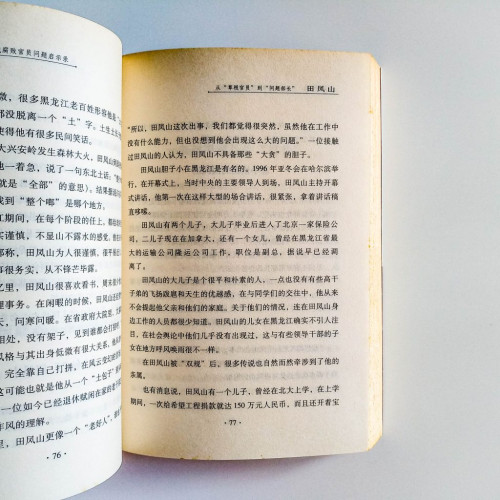 腐败官员问题启示录
微，很多黑龙江老百姓形容他是“一
都没脱离一个“土”字。土生土
使得他有很多民间笑话。
大兴安岭发生森林大火，田凤山
他一着急，说了一句东北土话：“
就是“全部”的意思）。结果
到“整个嘟”是哪个地方。
江期间，在每个阶段的任上，都
实谨慎，不显山不露水的感觉，
部称，田凤山为人谨慎，
事很务实，从不锋芒毕露。
里，田凤山很喜欢看书，周末很
理事务。在闲暇的时候，田凤山
天，问寒问暖。在省政府大院里，大
相处，没有架子，见到谁都会打
风格与其出身低微有很大关系，他从
，完全靠自己打拼，在风云变幻
这可能也就是他从一个“土包子”
一位如今已经退休赋闲在家的老
作风的理解。
里，田凤山更像一个“老好人”，
·76·
从“草根官员”到“问题部长” 田凤山
“所以，田凤山这次出事，我们都觉得很突然，虽然他在工作中
没有什么能力，但也没想到他会出现这么大的问题。”一位接触
过田凤山的人认为，田凤山不具备那些“大贪”的胆子。
田凤山胆子小在黑龙江是有名的。1996年亚冬会在哈尔滨举
行，在开幕式上，当时中央的主要领导人到场，田凤山主持开幕
式讲话，他第一次在这样大型的场合讲话，很紧张，拿着讲话稿
直哆嗦。
田凤山有两个儿子，大儿子毕业后进入了北京一家保险公
司，二儿子现在在加拿大，还有一个女儿，曾经在黑龙江省最大
的运输公司隆运公司工作，职位是副总，据说早已经调离。
田凤山的大儿子是个很平和朴素的人，一点也没有有些高干
子弟的飞扬跋扈和天生的优越感，在与同学们的交往中，他从来
不会提起他父亲和他们的家庭。关于他们的情况，连在田凤山身
边工作的人员都很少知道。田凤山的儿女在黑龙江确实不引人注
目，在社会舆论中他们儿子没有出现过，这与有些领导干部的子
女在地方呼风唤雨很不一样。
在田凤山被“双规”后，很多传说也自然而然牵涉到了他的
亲属。
也有消息说，田凤山有一个儿子，曾经在北大上学，在上学
期间，一次给希望工程捐款就达150万元人民币，而且还开着宝
·77·